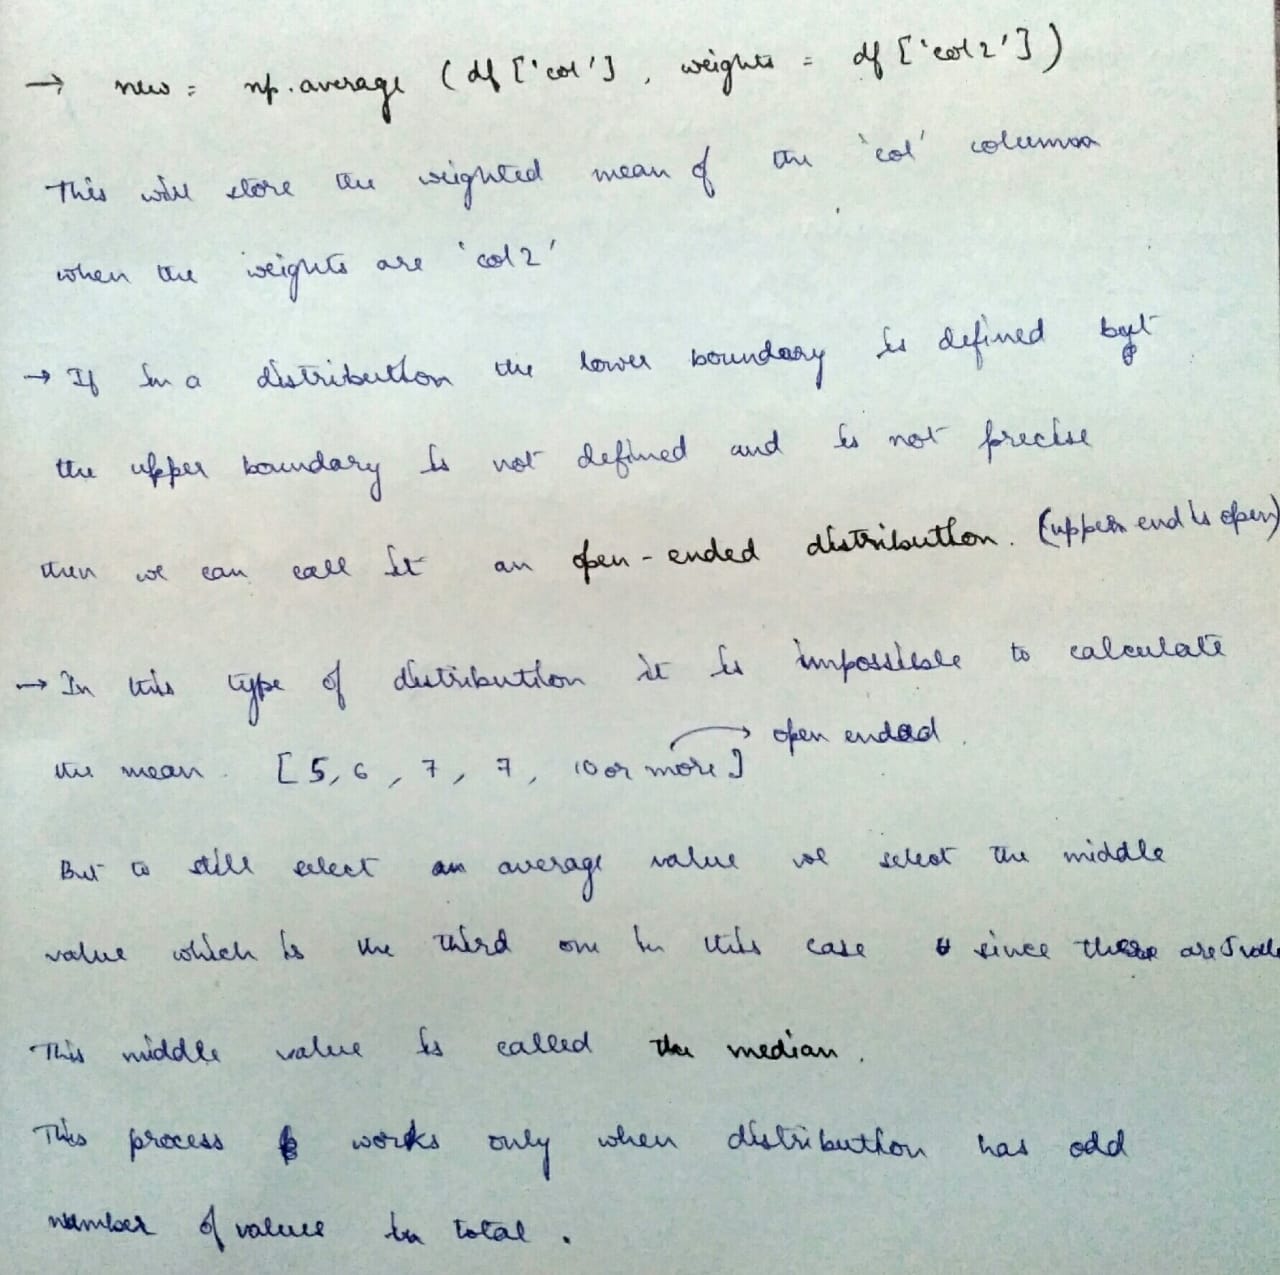 → new = np.average (df['col'], weights = df['col2'])
This will store the weighted mean of the 'col' column
when the weights are 'col2'
→ If in a distribution the lower boundary is defined but
the upper boundary is not defined and is not precise
then we can call it an open-ended distribution. (upper end is open)
→ In this type of distribution it is impossible to calculate
the mean. [5, 6, 7, 7, 10 or more] → open ended.
But to still select an average value we select the middle
value which is the third one in this case since there are 5
This middle value is called the median.
This process works only when distribution has odd
number of values in total.